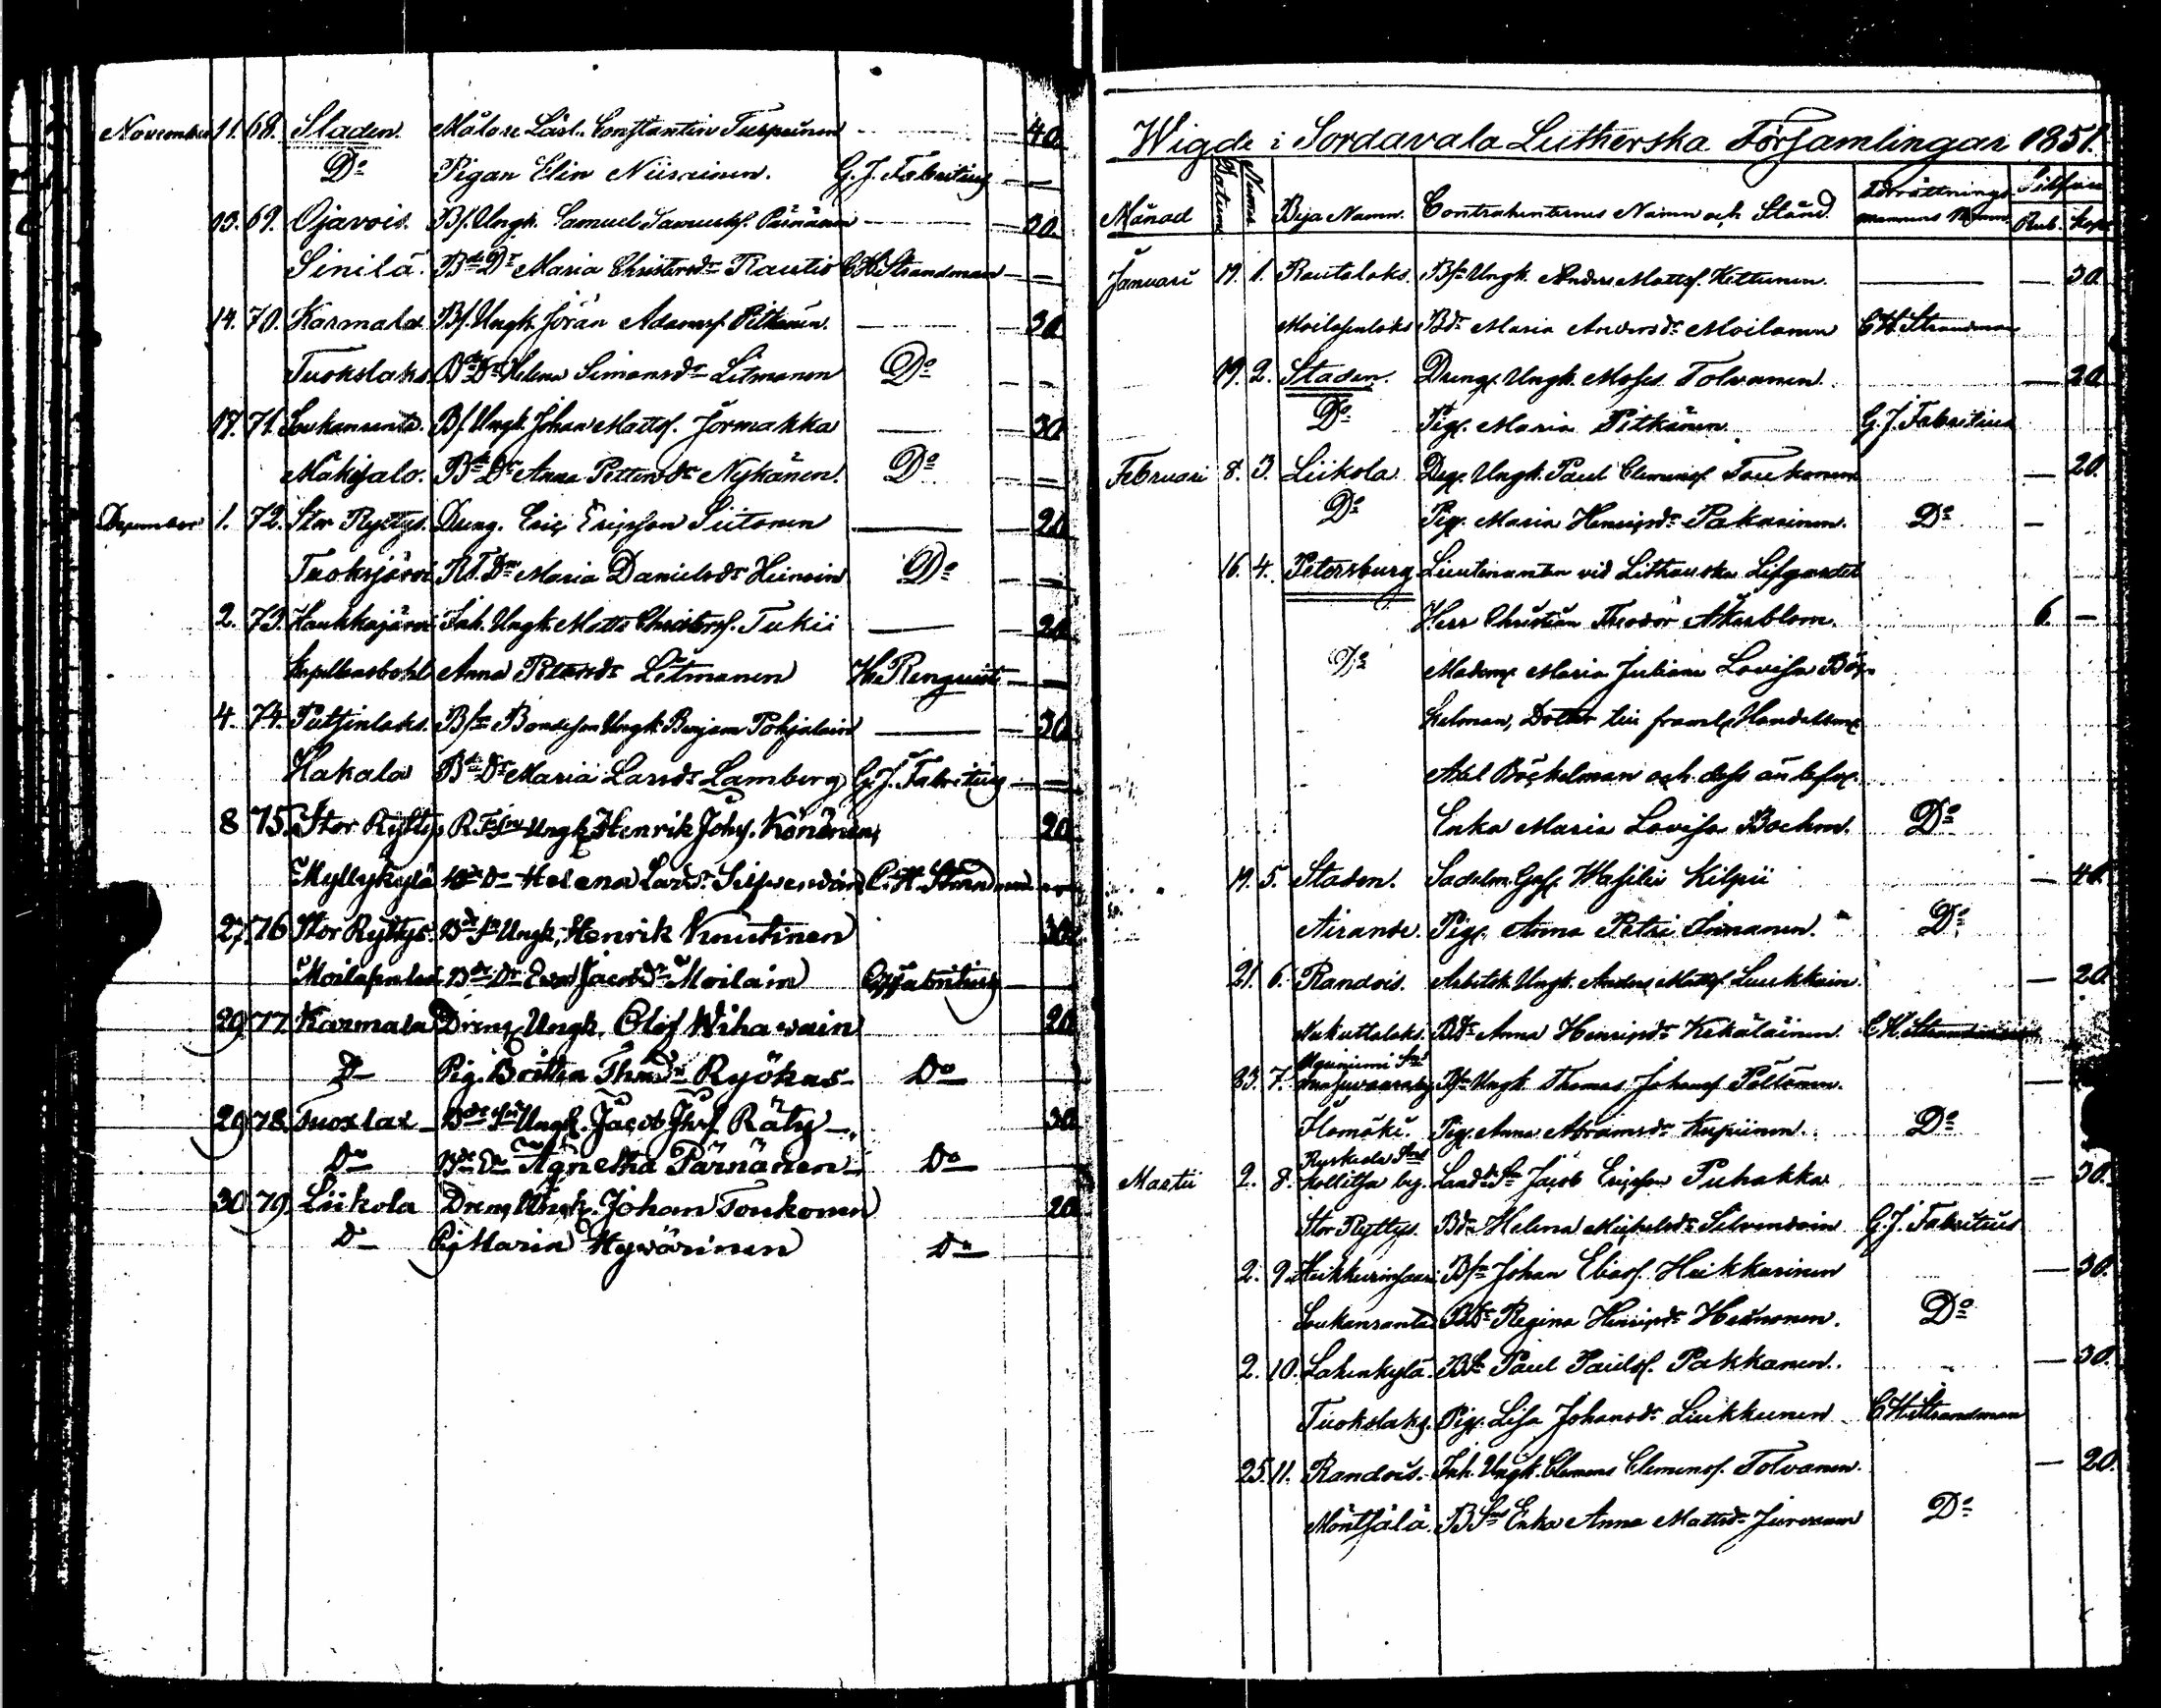 November 11. 68. Staden. Målare Lärl. Constantin Turpeinen — 40.
Do Pigan Elin Niirainen. G. J. Fabritius —
13. 69. Ojavois. Bf. Ungk. Samuel Samuelsf. Pärnänen — 30.
Sinilä. Bde Dr Maria Christersdr Rautio C H Strandman —
14. 70. Karmala Bf. Ungk. Jöran Adamsf. Pitkänen. — 30.
Tuokslaks Bde Dr Helena Simonsdr Litmanen Do —
17. 71. Soukanranta. Bf. Ungk. Johan Mattsf. Jormakka — 30.
Mäkisalo. Bde Dr Anna Pettersdr Nykänen. Do —
December 1. 72. Stor Ryttys. Dreng. Eric Ericsson Siitonen — 20.
Tuoksjärvi R.T. Dr Maria Danielsdr Heinoin Do —
2. 73. Haukkajärvi Inh. Ungk. Matts Christersf. Tukii — 20.
Anna Petersdr Litmanen H. Renquist —
4. 74. Putsinlaks. Bfr Bondeson Ungk. Benjam Pohjalain — 30.
Hakala Bde Dr Maria Larsdr Lamberg G. J. Fabritius —
8 75. Stor Ryttys Ungk Henrik Johs. Könönen, 20.
Myllykylä Bde Dr Helena Larsdr Silfwendoin C. H. Strandman
27. 76 Stor Ryttys. Bde Sn Ungk, Henrik Knuutinen 30.
Bde Dr Eva Jacobsdr Moilain G J Fabritius —
29 77. Karmala Dreng Ungk. Olof Wihawain 20.
Do Pig. Britha Thmdr Ryökas Do
29 78. Tuoxlax Bde Sn Ungk. Jacob Jhsf Räty 30.
Do Bde Dr Agnetha Pärnänen Do
30. 79. Liikola Dreng Ungk. Johan Toukonen 20.
Do Pig Maria Hywärinen Do
Wigde i Sordavala Lutherska Församlingar 1851.
Månad Datum Numer Bya Namn. Contrahenternes Namn och Stånd. Förrättnings mannens Namn. Rub. Kop.
Januari 19. 1. Rautalaks. Bfn Ungk. Anders Mattsf. Kettunen. — 30.
Moilasenlaks Bdr Maria Andersdr Moilanen C H Strandman
19. 2. Staden. Dreng. Ungk. Moses Tolvanen. — 20.
Do Pig. Maria Pitkänen. G. J. Fabritius
Februari 8. 3. Liikola Dreg. Ungk. Paul Clemensf. Toukonen — 20.
Do Pig. Maria Henricsdr Pakarinen. Do —
16. 4. Petersburg Lieutenanten vid Lithauska Lifgardet
Herr Christian Theodor Åkerblom. 6. —
Do Madem. Maria Juliana Lovisa Böc-
kelman, Dotter till framl. Handelsm.
Abel Böckelman och dess
Enka Maria Lovisa Boehm. Do
19. 5. Staden. Sadelm. Gesf. Wasilei Kilpii — 40.
Airanne. Pig. Anna Petri Innanen. Do
21. 6. Randois. Arbetsk. Ungk. Anders Mattsf. Luukkain. — 20.
Nukuttalaks. Bdr Anna Henricsdr Kekäläinen. C H Strandman
23. 7. Bfn Ungk. Thomas Johansf. Pöllönen. —
Ilomäki. Pig. Anna Abramsdr Kupiinen. Do
Martii 2. 8. Ruskeala Kollitsa by. Jacob Ericson Puhakka — 30.
Stor Ryttys. Bdr Helena Michelsdr Silvendoin G. J. Fabritius
2. 9. Heikkurinsaari Bfn Johan Eliasf. Heikkurinen — 30.
Soukanranta Bdr Regina Henricsdr Heinonen. Do
2. 10. Lahenkylä. Bfn Paul Paulsf. Pakkanen. — 30.
Tuokslaks. Pig. Lisa Johansdr Liukkunen C H Strandman
25. 11. Randois. Inh. Ungk. Clemens Clemensf. Tolvanen. — 20.
Möntsälä. Enka Anna Mattsdr Do